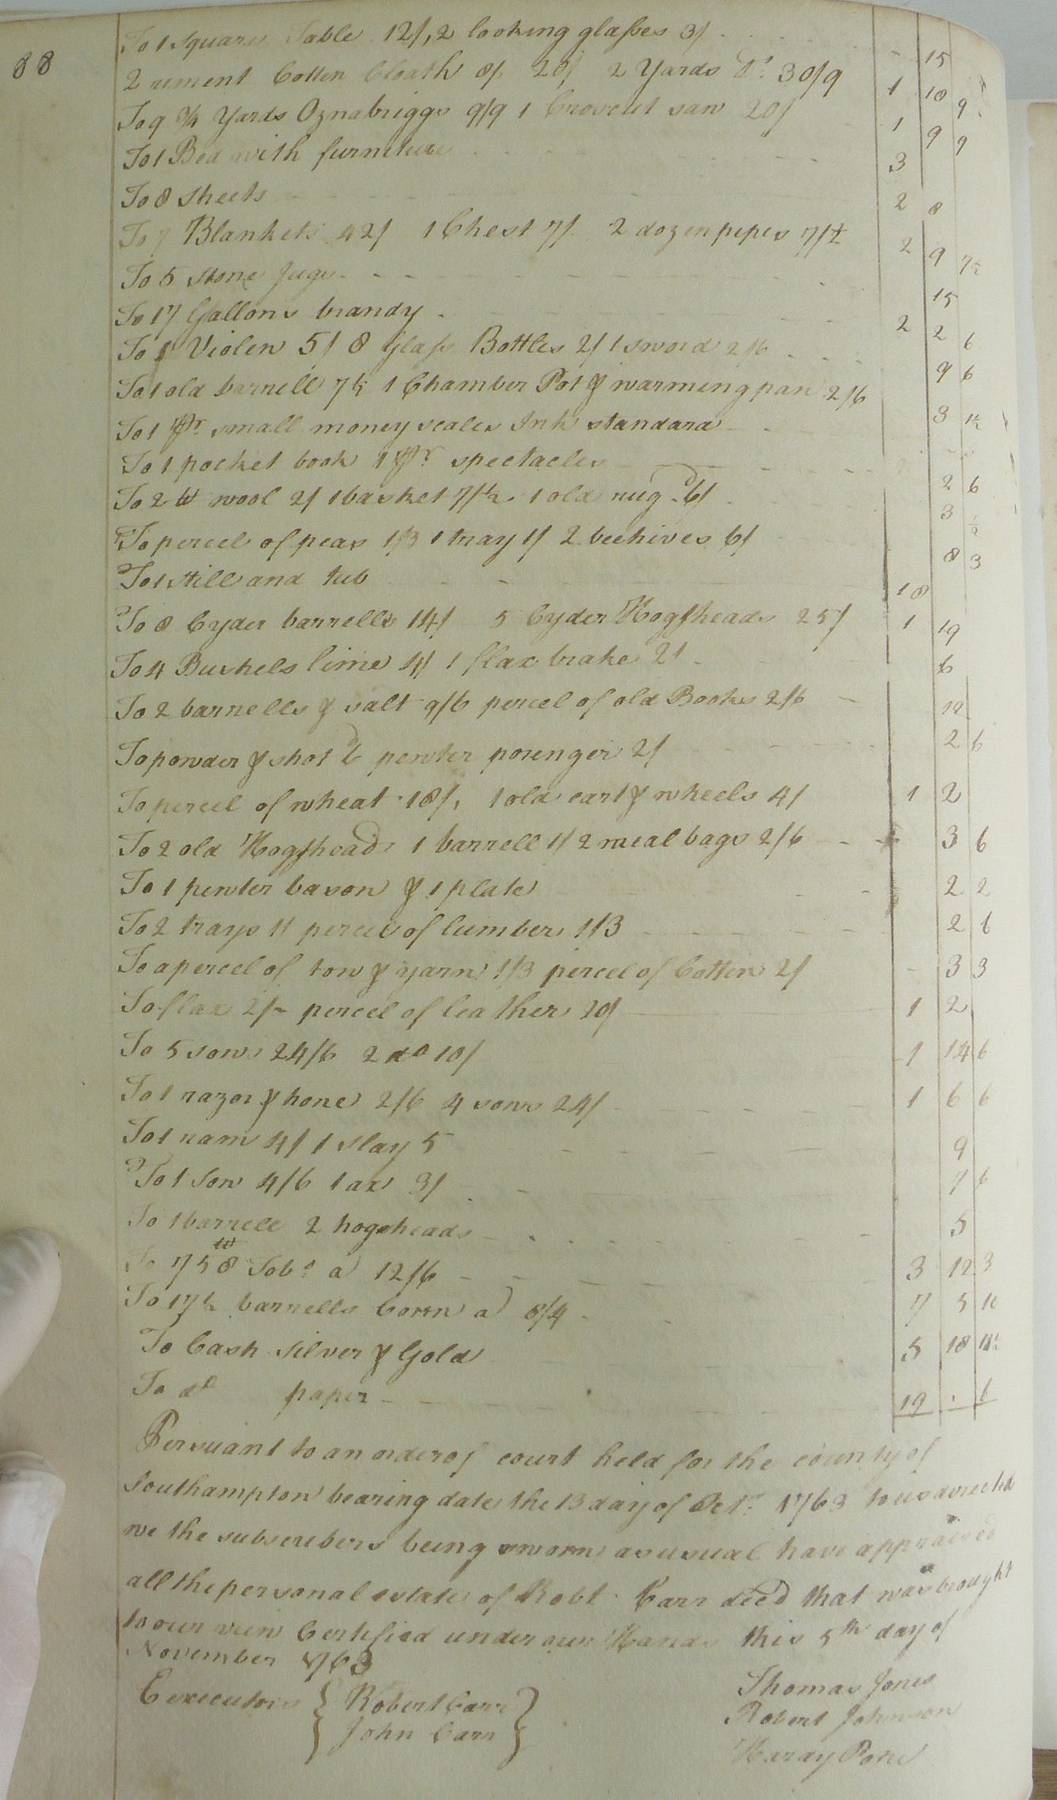 88
To 1 Square Table 12/, 2 looking glasses 3/ - 15
2 rement Cotton Cloath 8/ 20/ 2 Yards Do 30/9 1 10 9
To 9 3/4 Yards Oznabriggs 9/9 1 Crosscut saw 20/ 1 9 9
To 1 Bed with furniture 3
To 8 sheets 2 8
To 7 Blankets 42/ 1 Chest 7/ 2 dozen pipes 7/½ 2 9 7½
To 5 stone Jugs 15
To 17 Gallons brandy 2 2 6
To 1 Violen 5/ 8 Glass Bottles 2/ 1 sword 2/6 9 6
To 1 old barrell 7½ 1 Chamber Pot & warming pan 2/6 3 1½
To 1 pr small money scales Ink standard
To 1 pocket book 1 pr spectacles 2 6
To 2 lb wool 2/ 1 basket 7/½ 1 old rug 6/ 3 ½
To percel of peas 1/3 1 tray 1/ 2 beehives 6/ 8 3
To 1 still and tub 18
To 8 Cyder barrells 14/ 5 Cyder Hogsheads 25/ 1 19
To 4 Bushels lime 4/ 1 flax brake 2/ 6
To 2 barnells & salt 9/6 percel of old Books 2/6 12
To powder & shot 6d pewter porenger 2/ 2 6
To percel of wheat 18/, 1 old cart & wheels 4/ 1 2
To 2 old Hogsheads 1 barrell 1/ 2 meal bags 2/6 3 6
To 1 pewter bason & 1 plate 2 2
To 2 trays 1/ percel of lumber 1/3 2 6
To a percel of tow & yarn 1/3 percel of Cotten 2/ 3 3
To flax 2/- percel of leather 20/ 1 2
To 5 sows 24/6 2 do 10/ 1 14 6
To 1 razor & hone 2/6 4 sows 24/ 1 6 6
To 1 ram 4/ 1 slay 5 9
To 1 Sow 4/6 1 ax 3/ 7 6
To 1 barrell 2 hogsheads 5
To 758 lb Tobo a 12/6 3 12 3
To 17½ barrells Corn a 8/4 7 5 10
To Cash Silver & Gold 5 18 11½
To do paper 19 . 1
Persuant to an order of court held for the county of
Southampton bearing date the 13 day of Octr 1763 to us directed
we the subscribers being sworn as usual have appraised
all the personal estate of Robt Carr decd that was brought
to our view Certified under our Hands this 5th day of
November 1763
Executors { Robert Carr Thomas Jones
John Carr } Robert Johnson
Haray Pone